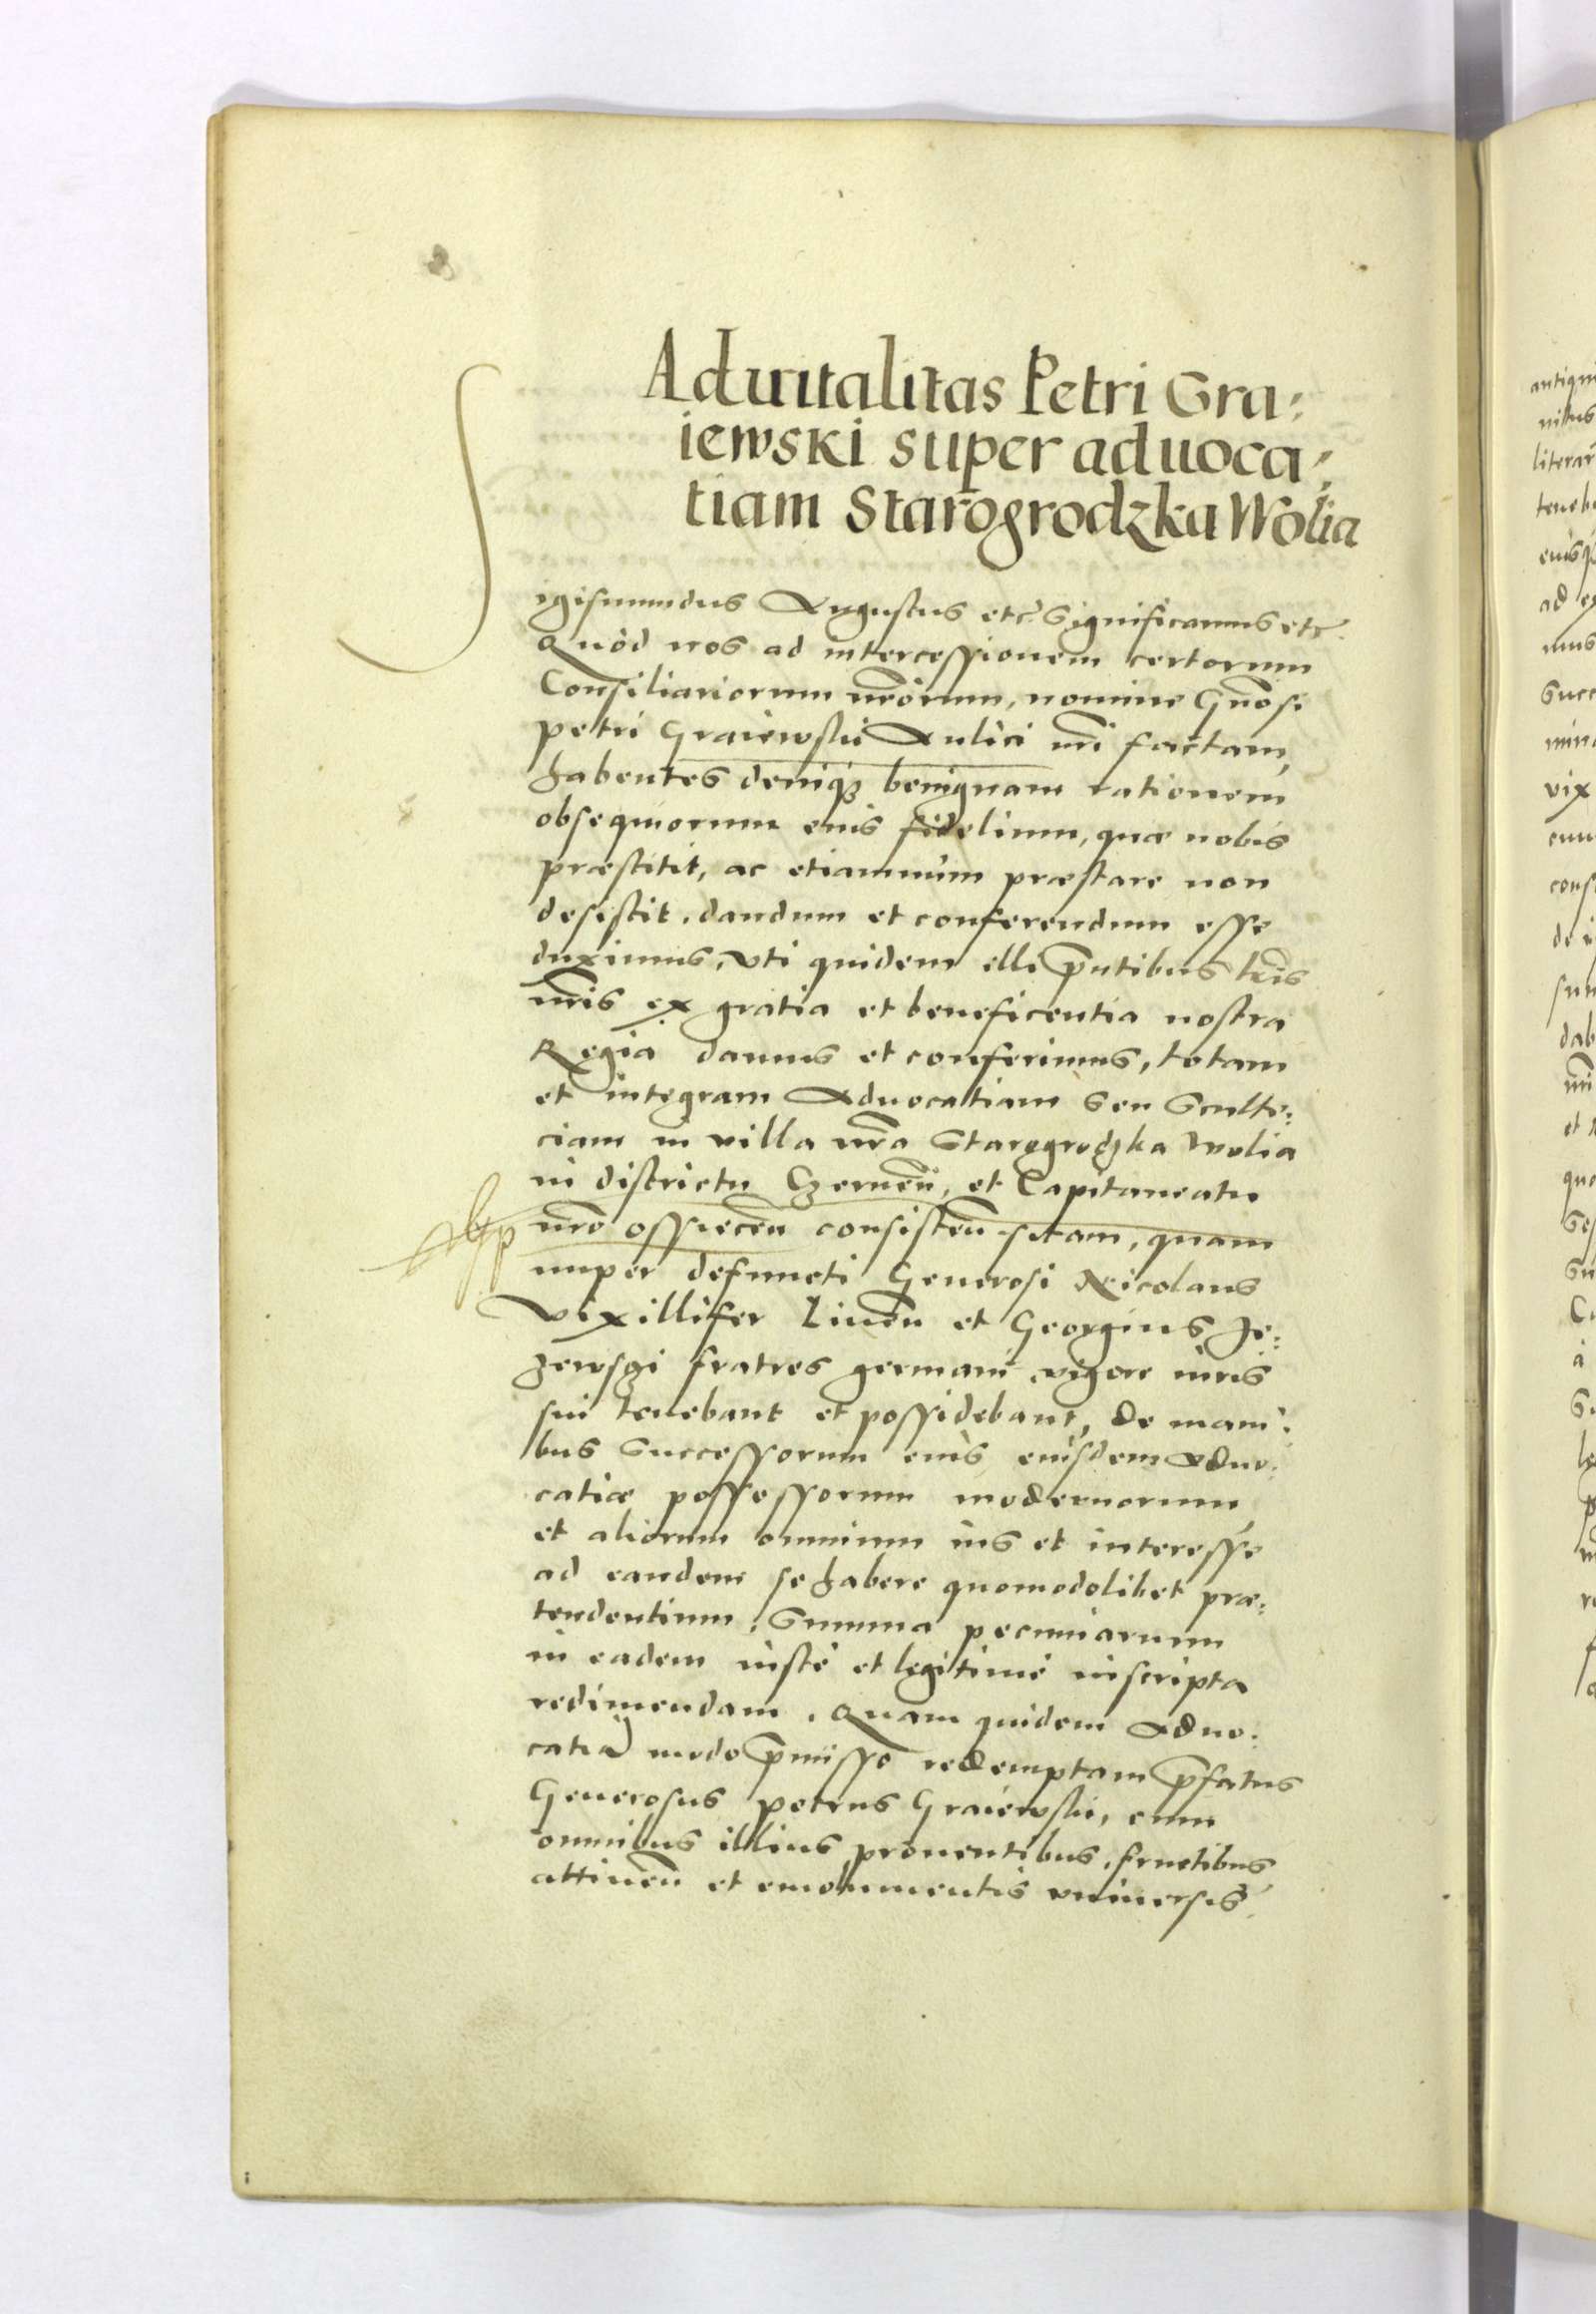 Aduitalitas Petri Gra:
iewski super aduoca:
tiam Starogrodzka Wolia
Sigismundus Augustus etc̃ Significamus etc̃.
Quòd nos ad intercessionem certorum
Consiliariorum nr̃orum, nomine Gñosi
Petri Graiewski Aulici nr̃i factam,
habentes deniq3 benignam rationem
obsequiorum eius fidelium, quæ nobis
præstitit, ac etiamnùm præstare non
desistit, dandum et conferendum esse
duximus, vti quidem illi p̃ntibus lr̃is
nr̃is ex gratia et beneficentia nostra
Regia damus et conferimus, totam
et integram Aduocatiam seu Sculte:
ciam in villa nr̃a Starogrodzka Wolia
in districtu Czerneñ, et Capitaneatu
nr̃o Ossieceñ consisteñ sitam, quam
nuper defuncti Generosi Nicolaus
Vixillifer Liueñ et Georgius Je:
zewsgi fratres germani vigore iuris
sui tenebant et possidebant, de mani:
bus Successorum eius eiusdem Aduo:
catiæ possessorum modernorum,
et aliorum omnium ius et interesse
ad eandem se habere quomodolibet præ:
tendentium, Summa pecuniarum
in eadem iustè et legitimè inscripta
redimendam. Quam quidem Aduo:
catiã modo p̃misso redemptam p̃fatus
Generosus Petrus Graiewski, cum
omnibus illius prouentibus, fructibus
attineñ et emolumentis vniuersis